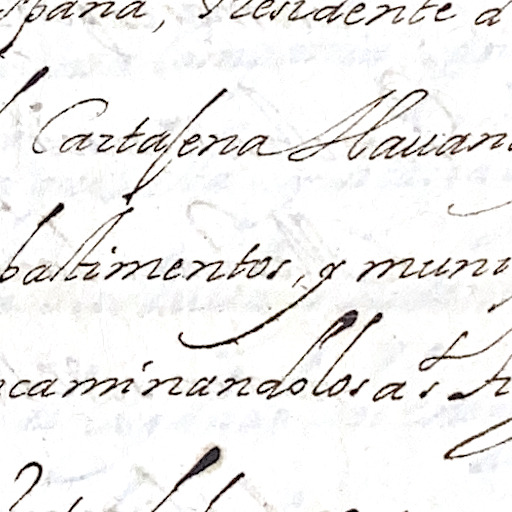 spaña, Presidente d
Cartagena Hauan
bastimentos, y muni
ncaminandolos a S